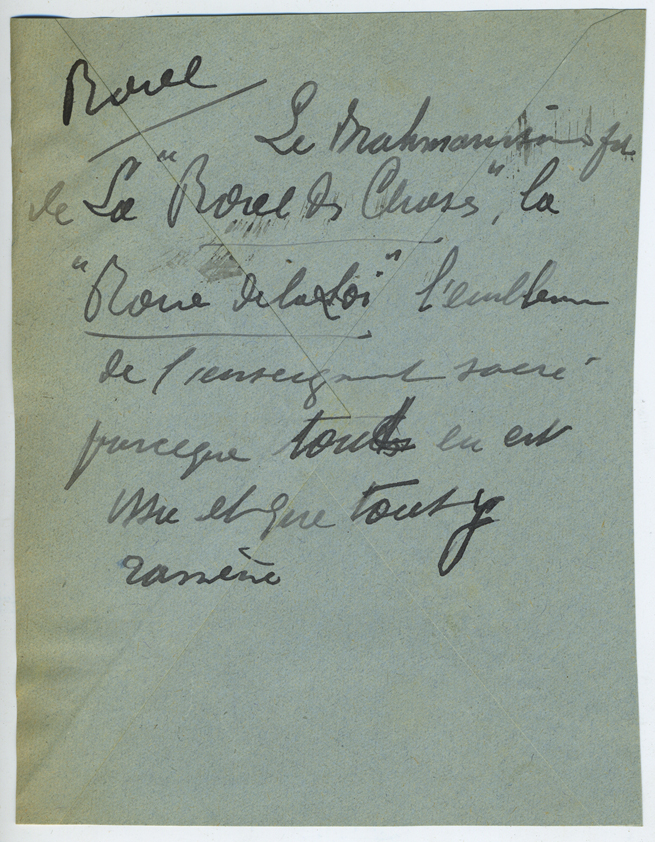 Roue
Le Brahmanisme fit
de La "Roue des Choses", la
"Roue de la Loi" l'emblème
de l'enseignement sacré
parceque tout en est
issu et que tout y
ramène